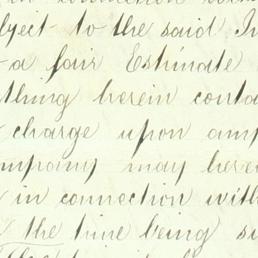 in connection
bject to the said In
a fair Estimate
thing herein conta
charge upon any
ompany may here
in connection with
the time being su